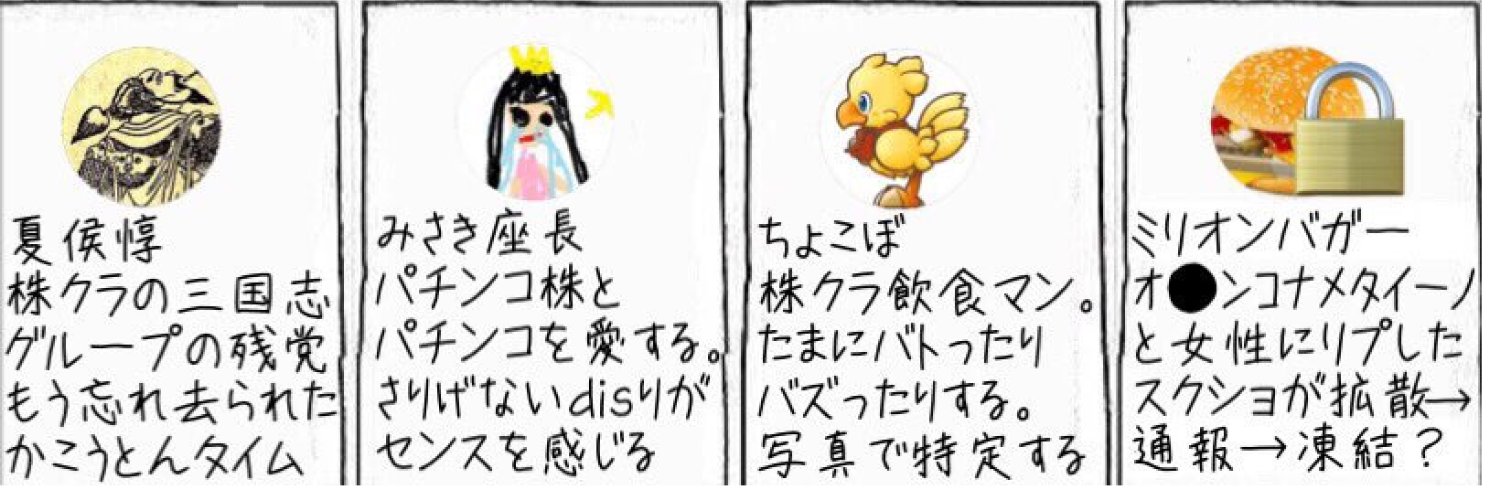 夏侯惇
株クラの三国志
グループの残党
もう忘れ去られた
かこうとんタイム
みさき座長
パチンコ株と
パチンコを愛する。
さりげないdisりが
センスを感じる
ちょこぼ
株クラ飲食マン。
たまにバトったり
バズったりする。
写真で特定する
ミリオンバガー
オ●ンコナメタイーノ
と女性にリプした
スクショが拡散→
通報→凍結？